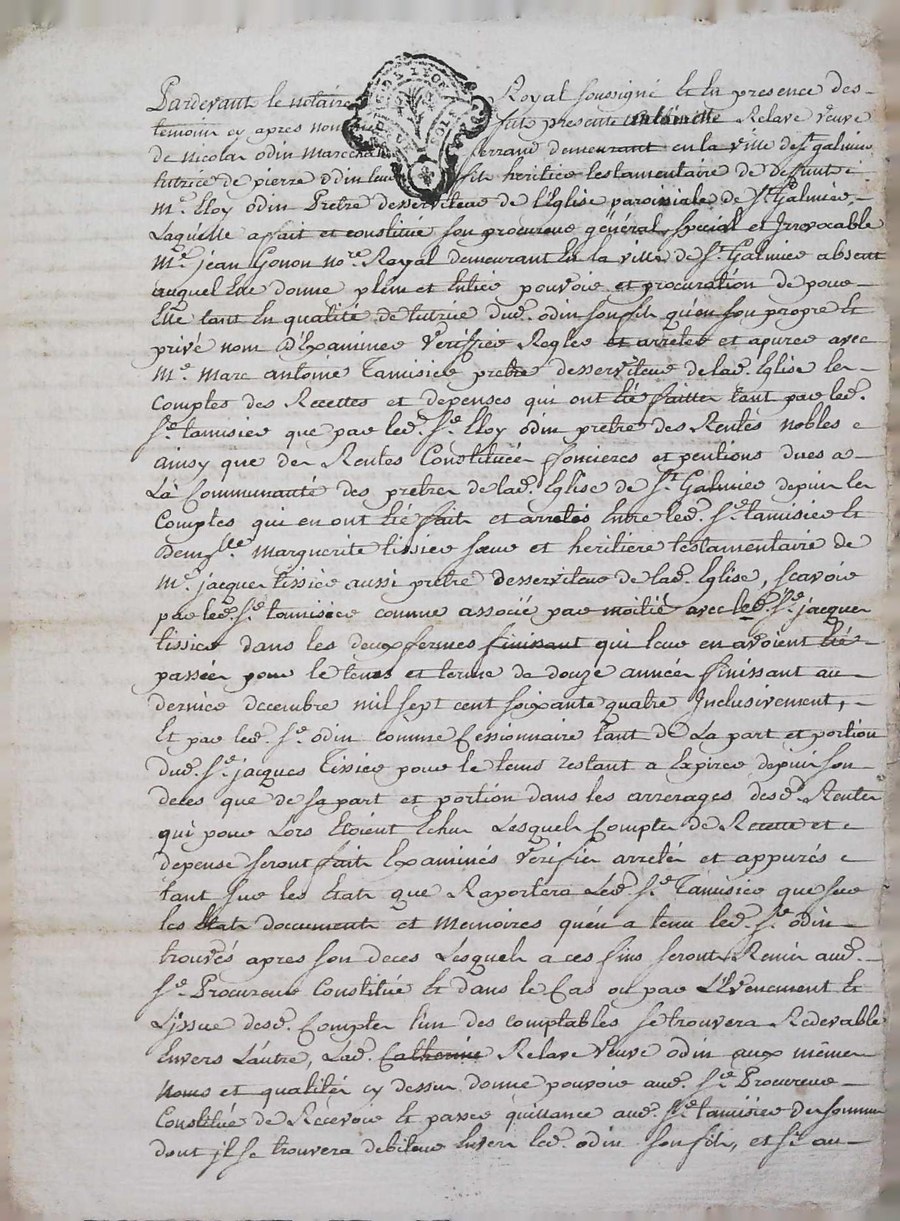 Pardevant le notaire Royal soussigné et En presence des
temoin cy apres nom fute presente antoinette Relave veuve
de nicolas odin marechal ferrand demeurant en la ville de st galmier
tutrice de pierre odin leur fils heritier testamentaire de deffunt
Me. Eloy odin Pretre desserviteur de l'Eglise paroissiale de St. Galmier,
Laquelle a fait et constitué son procureur général, special et Irrevocable
Me. jean Gonon nore. Royal demeurant En la ville de St. Galmier absent
auquel Elle donne plein et Entier pouvoir et procuration de pour
Elle tant En qualité de tutrice dud. odin son fils qu'en son propre Et
privé nom d'Examiner Verifier Regler et arreter et apurer avec
Me. marc antoine Tamisier pretre desserviteur de lad. Eglise les
Comptes des Recettes et depenses qui ont Eté faittes tant par led.
Sr. tamisier que par led. Sr. Eloy odin pretre des Rentes nobles
ainsy que des Rentes Constituées foncieres et pentions dues a
La Communauté des pretres de lad. Eglise de St. Galmier depuis les
Comptes qui en ont Eté faits et arretés Entre led. Sr. tamisier Et
demlle marguerite tissier sœur et heritiere testamentaire de
Me. jacques tissier aussi pretre desserviteur de lad. Eglise, scavoir
par led. Sr. tamisier comme associé par moitié avec led. Sr. jacques
tissier dans les deux fermes finissant qui leur en avoient Eté
passées pour le tems et terme de douze années finissant au
dernier decembre mil sept cent soixante quatre Inclusivement,
Et par led. Sr. odin comme Cessionnaire tant de La part et portion
dud. Sr. jacques Tissier pour le tems restant a Expirer depuis son
deces que de sa part et portion dans les arrerages desd. Rentes
qui pour Lors Etoient Echus Lesquels Comptes de Recette et
depense seront faits Examinés Verifier arretés et appurés
tant sur les Etats que Raportera Led. Sr. Tamisier que sur
les Etats documents et memoires qu'en a tenu led. Sr. odin
trouvés apres son deces Lesquels a ces fins seront Remis aud.
Sr. Procureur Constitué Et dans le Cas ou par L'Evenement Et
L'jssue desd. Comptes l'un des comptables se trouvera Redevable
Envers L'autre, Lad. Catherine Relave Veuve odin aux memes
noms et qualités cy dessus donne pouvoir aud. Sr. Procureur
Constitué de Recevoir Et passer quittance aud. Sr. tamisier des sommes
dont jl se trouvera debiteur Envers led. odin son fils, et si au